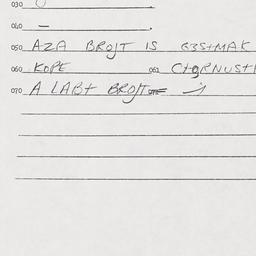 030
040 –
050 AZA BROJT IS G3S+MAK
060 KOPE 061 C+GRNUS+
070 A LAB+ BROJT